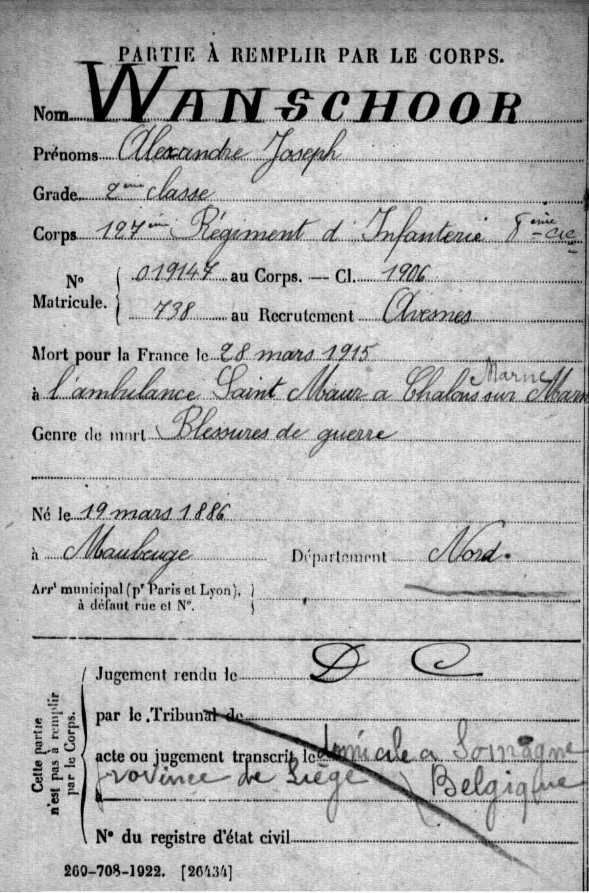 PARTIE À REMPLIR PAR LE CORPS.
Nom WANSCHOOR
Prénoms Alexandre Joseph
Grade 2ème classe
Corps 127ème Régiment d'Infanterie 8ème Cie
N° Matricule. 019147 au Corps. — Cl. 1906
738 au Recrutement Avesnes
Mort pour la France le 28 mars 1915
Marne
à l'ambulance Saint Maur a Chalons sur Marn
Genre de mort Blessures de guerre
Né le 19 mars 1886
à Maubeuge Département Nord.
Arrt municipal (pr Paris et Lyon),
à défaut rue et N°.
Cette partie n'est pas à remplir par le Corps.
Jugement rendu le D C
par le Tribunal de
acte ou jugement transcrit le domicile a Somagne
à province de Liège (Belgique
N° du registre d'état civil
260-708-1922. [26434]